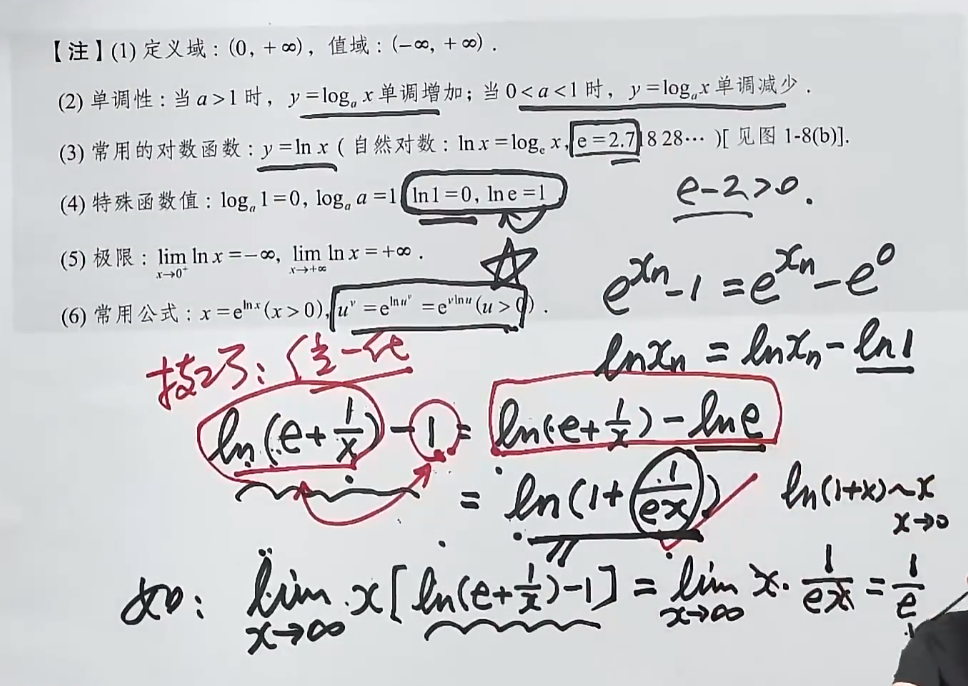 【注】(1) 定义域：(0, +∞)，值域：(-∞, +∞).
(2) 单调性：当 a>1 时，y=logₐx 单调增加；当 0<a<1 时，y=logₐx 单调减少.
(3) 常用的对数函数：y=ln x (自然对数：ln x=logₑx, e=2.71828⋯)[见图 1-8(b)].
(4) 特殊函数值：logₐ1=0, logₐa=1, ln1=0, ln e=1
e-2>0.
(5) 极限：lim_{x→0⁺} ln x=-∞, lim_{x→+∞} ln x=+∞.
e^{xₙ}-1=e^{xₙ}-e^0
(6) 常用公式：x=e^{ln x}(x>0), u^v=e^{ln u^v}=e^{v ln u}(u>0).
ln xₙ = ln xₙ - ln1
ln(e+1/x)-1=ln(e+1/x)-ln e
=ln(1+1/(ex))
ln(1+x)~x
x→0
如：lim_{x→∞} x[ln(e+1/x)-1]=lim_{x→∞} x·1/(ex)=1/e